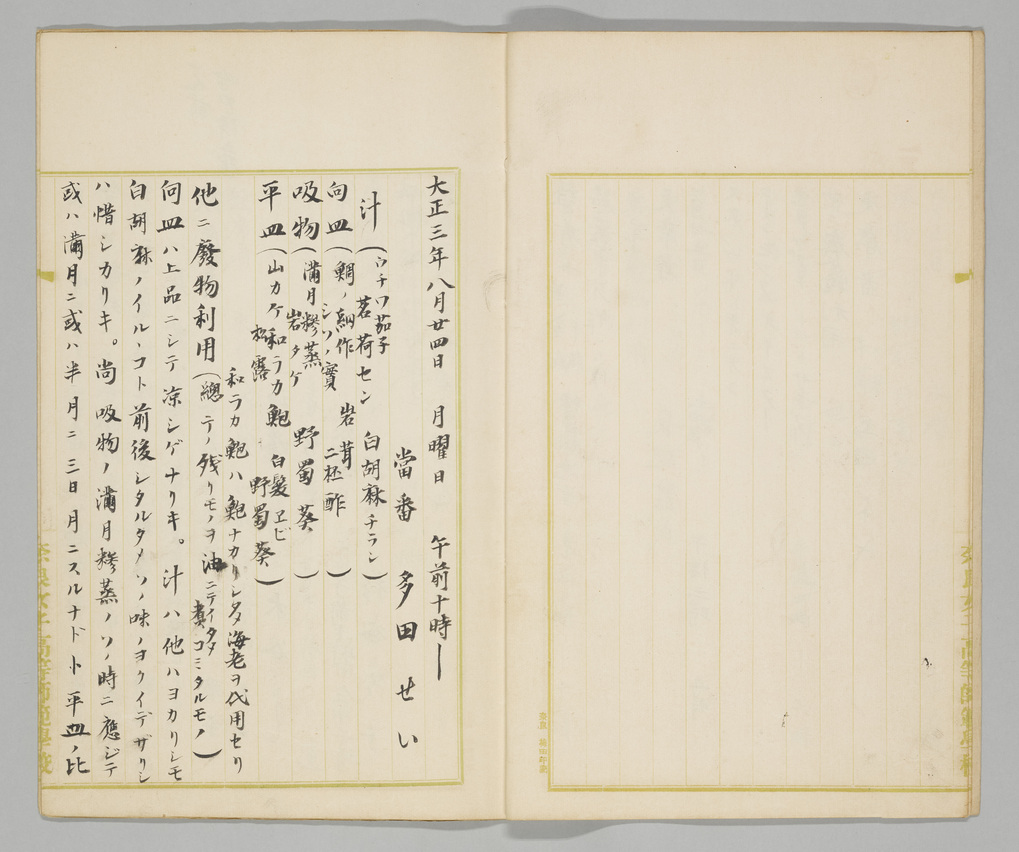 大正三年八月廿四日 月曜日 午前十時―
當番 多田せい
汁(ウチワ茄子 茗荷セン 白胡麻チラシ)
向皿(鯛ノ細作 シソノ實 岩茸 二杯酢)
吸物(満月糝蒸 岩タケ 野蜀葵)
平皿(山カケ和ラカ鮑 白髪ヱビ 松露 野蜀葵)
和ラカ鮑ハ鮑ナカリシタメ海老ヲ代用セリ
他ニ廢物利用(總テノ残リモノヲ油ニテイタメ煮コミタルモノ)
向皿ハ上品ニシテ涼シゲナリキ。汁ハ他ハヨカリシモ
白胡麻ノイルヽコト前後シタルタメソノ味ノヨクイデザリシ
ハ惜シカリキ。尚吸物ノ満月糝蒸ノソノ時ニ應ジテ
或ハ満月ニ或ハ半月ニ三日月ニスルナドト平皿ノ比
奈良女子高等師範學校